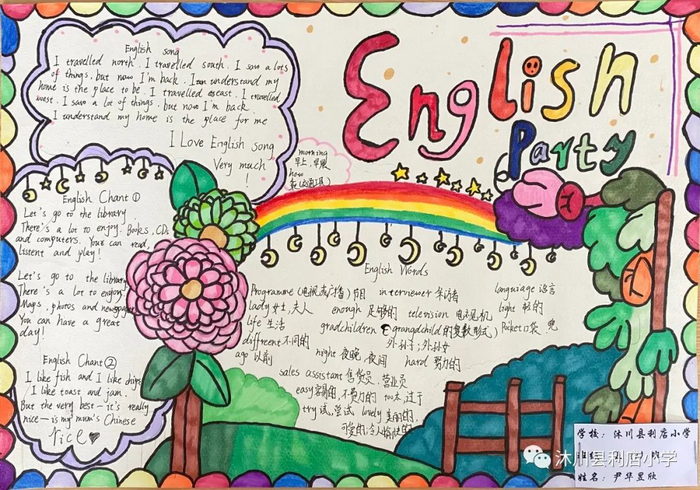 English
Party
English song
I travelled north. I travelled south. I saw a lots
of things, but now I'm back. I understand my
home is the place to be. I travelled east. I travelled
west. I saw a lot of things, but now I'm back.
I understand my home is the place for me
I Love English song
Very much
!
morning
早上,早晨
how
English Chant ①
Let's go to the library.
There's a lot to enjoy. Books, CDs
and computers. Your can read,
listent and play!
Let's go to the library
There's a lot to enjoy
Maps, photos and newspapers
You can have a great
day!
English Chant ②
I like fish and I like chips
I like toast and jam.
But the very best — it's really
nice — is my mum's Chinese
rice
English Words
Programme (电视或广播) 节目 interviewer 采访者 language 语言
lady 女士,夫人 enough 足够的 television 电视机 light 轻的
life 生活 gradchildren (grangdchild的复数形式) Pocket 口袋, 兜
different 不同的 外孙子;外孙女
ago 以前 night 夜晚,夜间 hard 努力的
sales assistant 售货员,营业员
easy 容易的,不费力的 too 太,过于
try 试,尝试 lovely 美丽的,
可爱的,令人愉快的
学校: 沐川县利店小学
姓名: 尹华昱欣
沐川县利店小学